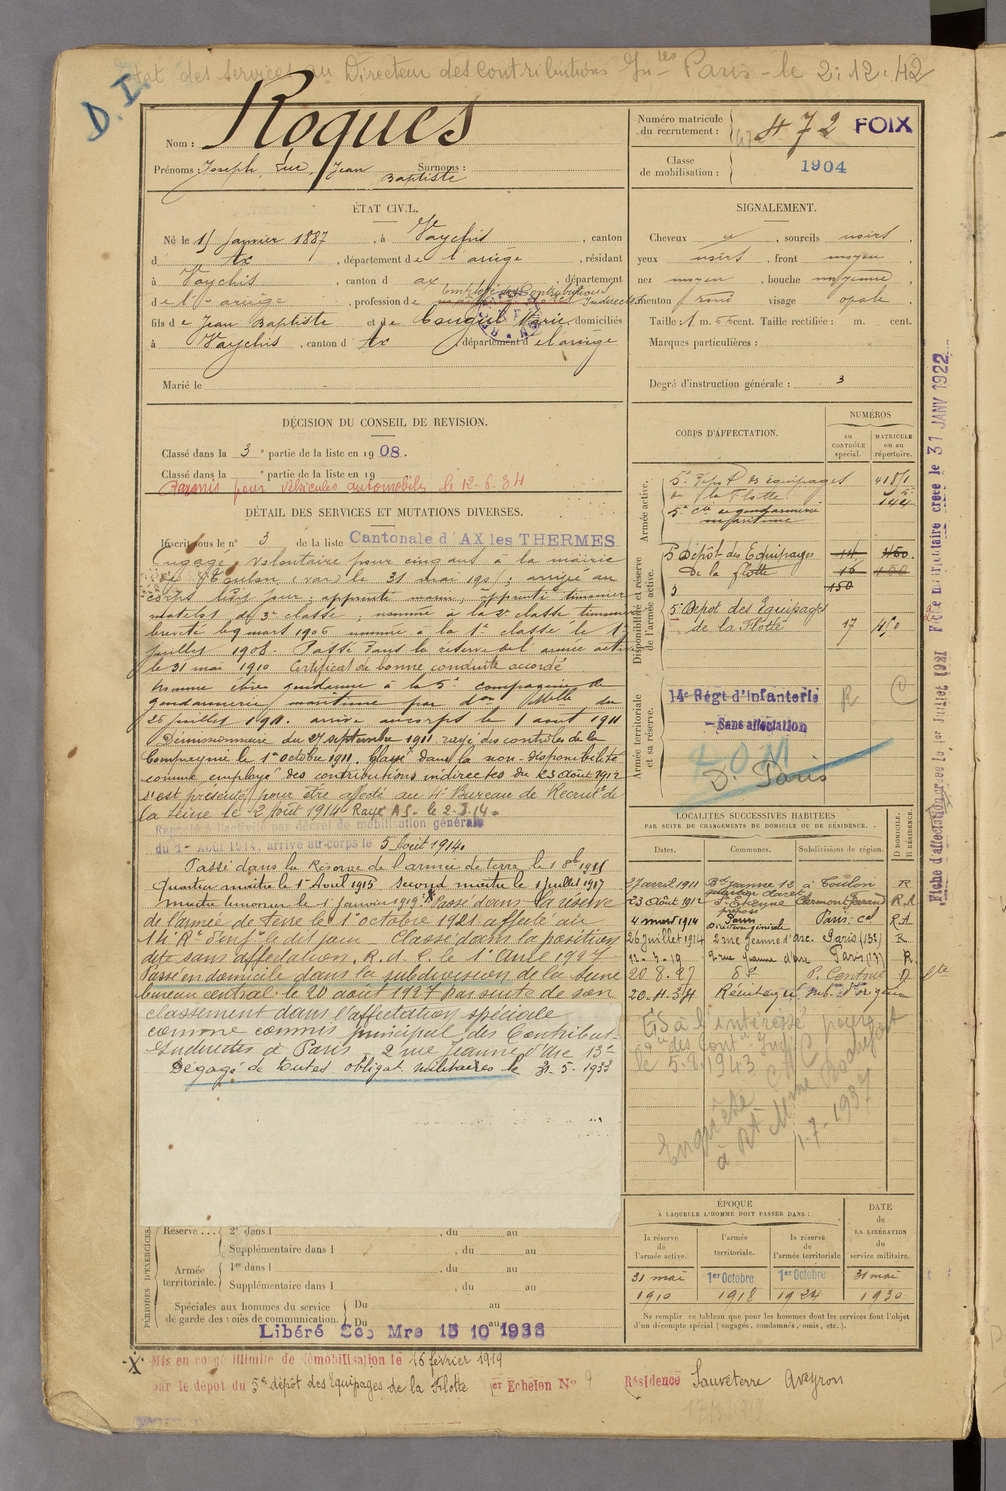 Etat des services au Directeur des contributions Inres Paris - le 2.12.42
D.I.
Nom : Roques
Prénoms : Joseph, Luc, Jean Baptiste Surnoms :
ÉTAT CIVIL.
Né le 15 janvier 1887, à Vaychis, canton
d'Ax, département de l'ariège, résidant
à Vaychis, canton d ax, département
de l'ariège, profession de Employé des Contributions Indirectes
fils de Jean Baptiste et de Marie, domiciliés
à Vaychis, canton d'Ax, département de l'ariège
Marié le
DÉCISION DU CONSEIL DE REVISION.
Classé dans la 3e partie de la liste en 1908.
Classé dans la e partie de la liste en 19
pour véhicules automobiles le 12-6-34
DÉTAIL DES SERVICES ET MUTATIONS DIVERSES.
Inscrit sous le n° 3 de la liste Cantonale d'AX les THERMES
Engagé volontaire pour cinq ans à la mairie
de Toulon (Var) le 31 mai 1905; arrivé au
corps ledit jour; apprenti marin, apprenti timonier
matelot de 3e classe; nommé à la 2e classe timonier
breveté le 9 mars 1906 nommé à la 1e classe le 1er
juillet 1908. Passé dans la réserve de l'armée active
le 31 mai 1910 Certificat de bonne conduite accordé
Nommé élève gendarme à la 5e compagnie de
gendarmerie maritime par don Mlle du
25 juillet 1911. arrivé au corps le 1 aout 1911
Démissionnaire du 27 septembre 1911. rayé des contrôles de la
Compagnie le 1er octobre 1911. Classé dans la non-disponibilité
comme employé des contributions indirectes du 23 Août 1912
s'est présenté pour être affecté au 4e Bureau de Recrut. de
la Seine le 2 août 1914 Rayé A.S. le 2.8.14.
Rappelé à l'activité par décret de mobilisation générale
du 1er Août 1914, arrivé au corps le 5 Août 1914.
Passé dans la Réserve de l'armée de terre le 1 8bre 1911
Quartier maître le 1er Avril 1915 Second maître le 1 Juillet 1917
Maître timonier le 1 Janvier 1919. Passé dans la réserve
de l'armée de terre le 1er octobre 1921 affecté au
14e Rt d'Infie le dit jour. Classé dans la position
dite sans affectation. R.d.C. le 1er Avril 1927
Passé en domicile dans la subdivision de la Seine
bureau central le 20 août 1927 par suite de son
classement dans l'affectation spéciale
comme commis principal des Contribut.
Indirectes à Paris 2 rue Jeanne d'Arc 13e
Dégagé de toutes obligat. militaires le 31-5-1933
PÉRIODES D'EXERCICES.
Réserve ... 2e dans l , du au
Supplémentaire dans l , du au
Armée territoriale. 1re dans l , du au
Supplémentaire dans l , du au
Spéciales aux hommes du service de garde des voies de communication. Du au
Du au
Libéré Sce Mre 15 10 1936
Numéro matricule du recrutement : 472 FOIX
Classe de mobilisation : 1904
SIGNALEMENT.
Cheveux , sourcils noirs,
yeux noirs, front moyen
nez moyen, bouche moyenne
menton rond visage ovale
Taille : 1 m. 66 cent. Taille rectifiée : m. cent.
Marques particulières :
Degré d'instruction générale : 3
CORPS D'AFFECTATION.
NUMÉROS
au CONTRÔLE spécial.
MATRICULE ou au répertoire.
Armée active.
5e Dépôt des équipages de la Flotte 4181/1
5e Cie de gendarmerie maritime 144
Disponibilité et réserve de l'armée active.
5 Dépôt des Equipages de la flotte
150
5e Depot des Equipages
de la Flotte 17
Armée territoriale et sa réserve.
14e Régt d'Infanterie R
Sans affectation
D. Paris
LOCALITÉS SUCCESSIVES HABITÉES
PAR SUITE DE CHANGEMENTS DE DOMICILE OU DE RÉSIDENCE.
Dates. Communes. Subdivisions de région. D DOMICILE. R RÉSIDENCE
27 avril 1911 à Toulon R
23 Août 1912 St Etienne Clermont-Ferrand R.A
4 mars 1914 Paris Direction générale Paris-cal R.A
26 juillet 1914 2 rue Jeanne d'arc. Paris (13e) R
12-3-19 2 rue Jeanne d'Arc Paris (13) R.
20.8.27 do P. Central D
20-4-34 Réintégré sub. d'origine
à l'intéressé pour
des Conts Ind
le 5.8.1943
Enquête
à Mme Rochefort
1-7-1937
ÉPOQUE
À LAQUELLE L'HOMME DOIT PASSER DANS :
DATE de LA LIBÉRATION du service militaire.
la réserve de l'armée active.
l'armée territoriale.
la réserve de l'armée territoriale
31 mai 1910
1er Octobre 1918
1er Octobre 1924
31 mai 1930
Ne remplir ce tableau que pour les hommes dont les services font l'objet
d'un décompte spécial (engagés, condamnés, omis, etc.).
Mis en congé illimité de démobilisation le 16 février 1919
par le dépôt du 5e dépôt des Equipages de la Flotte 1er Echelon N° 9 Résidence Sauveterre Aveyron
Fiche d'affectation créée le 1er Juillet 1921 Fiche matriculaire créée le 31 JANV 1922